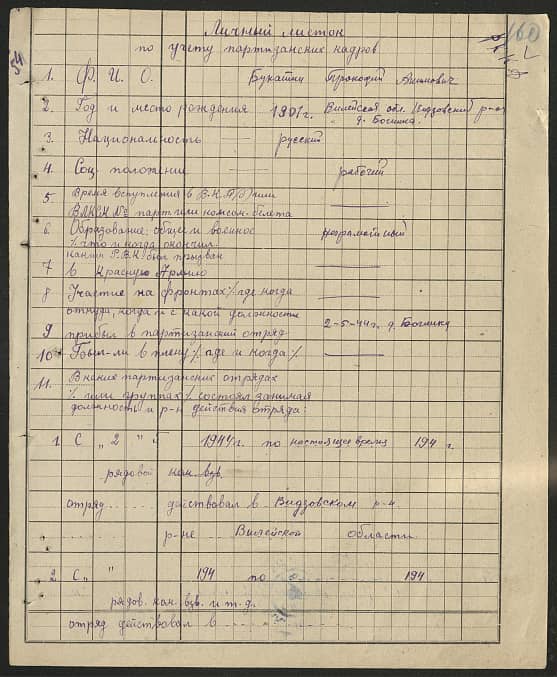 160
54
Личный листок
по учету партизанских кадров
1. Ф. И. О. Букатин Прокофий
2. Год и место рождения 1901г. Вилейской обл. Видзовский р-он
д. Богинка
3. Национальность русский
4. Соц. положение рабочий
5. Время вступления в В.К.П/б/ или
ВЛКСМ № парт или комсом. билета
6 Образование: общее и военное неграмотный
% что и когда окончил
каким Р.В.К. был призван
7 в Красную Армию
8 Участие на фронтах % где когда
откуда, когда и с какой должности
9 прибыл в партизанский отряд 2-5-44г. д. Богинку
10 Был-ли в плену % где и когда %
11. В каких партизанских отрядах
% или группах % состоял занимая
должность и р-н действия отряда:
1. С „2 " 5 1944г. по настоящее время 194 г.
рядовой ком. взв.
отряд ..... действовал в Видзовском р-н.
р-не Вилейской области
2 С „ " 194 по 194
рядов. ком. взв. и т. д.
отряд действовал в